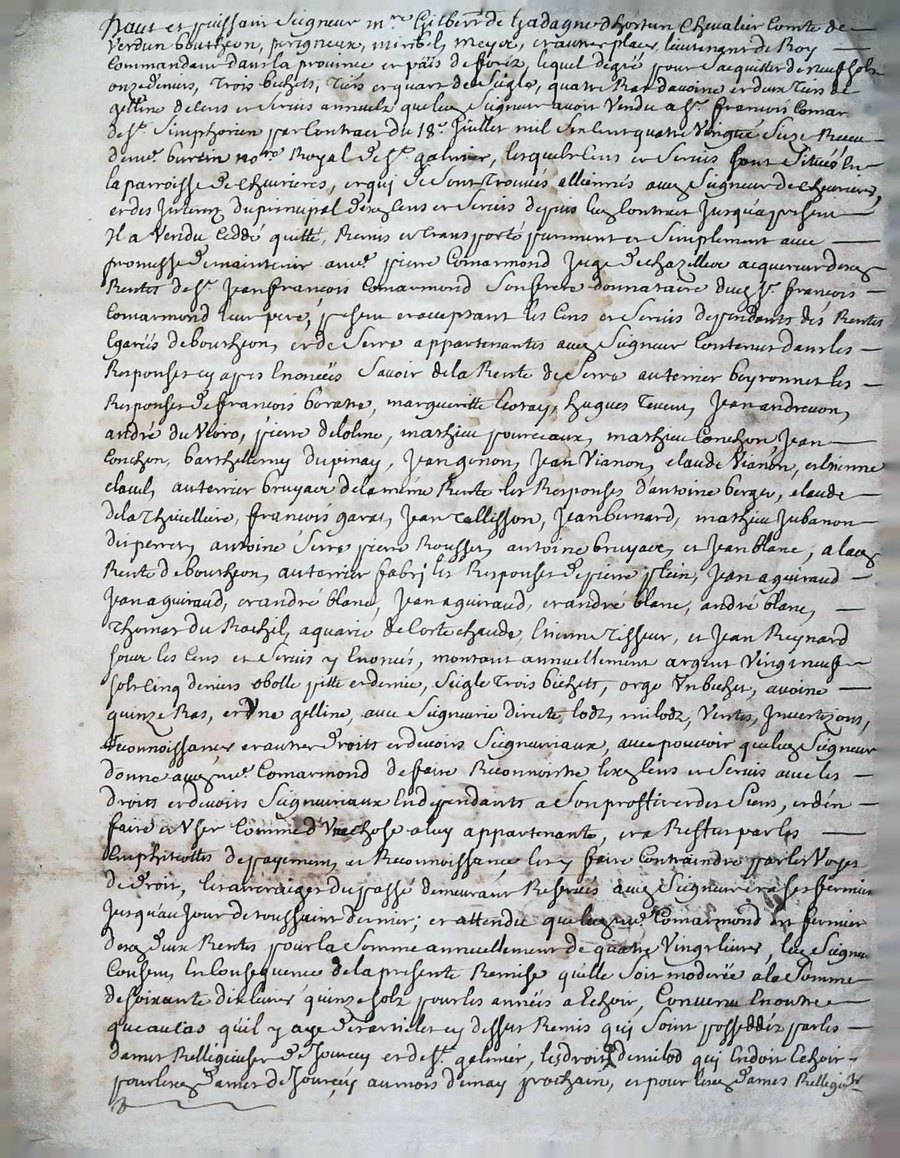 haut et puissant Seigneur mre Gilbert de Gadagne dhostun Chevalier Comte de
Verdun boutheon, perigneux, miribel, meyer, et autres places, lieutenant de Roy
Commandant dans la province et païs de forez, lequel degré pour Sacquitter de neuf solz
onze deniers, Trois bichets, Tiers et quart de Seigle, quatre Ras davoine et deux Tiers de
gelline de Cens et Servis annuels que led Seigneur avoit Vendu a Sr. francois Comar
de St. Simphorien par Contract du 18e. Juillet mil Six Cent quatre Vingt Seize Receu
de me. burtin nore Royal de St. galmier, lesquels Cens et Servis Sont Situés En
la parroisse de Chevrieres, et qui se Sont Trouvés alliennés aud Seigneur de Chevrieres,
et des Interez du principal desd Cens et Servis depuis led Contract Jusqua present
Il a Vendu Ceddé quitté, Remis et transporté purement et Simplement avec
promesse de maintenir a me. pierre Comarmond Juge de Chazelles acquereur desd
Rentes de Sr. Jean francois Comarmond Son frere donnataire dud Sr. francois
Comarmond leur pere, present et acceptant les Cens et Servis dependants des Rentes
Egarées de boutheon, et de Serre appartenantes aud Seigneur Contenus dans les
Responses cy apres Enoncées Savoir de la Rente de Serre au terrier boyronnet les
Responses de francois boratte, margueritte Coray, hugues Tevene, Jean andrevon,
andré du Voiro, pierre delolme, mathieu pourceaux, mathieu Conchon, Jean
Conchon, barthellemy dupinay, Jean genon, Jean Vianon, claude Vianon, et Etienne
clavel, au terrier bruyace de la meme Rente les Responses d'antoine berger, claude
dela Thuelliere, francois garat, Jean Tellisson, Jean bernard, mathieu Jubanon
duperret, antoine Serre pierre Rousset, antoine bruyace, et Jean blanc, a lad
Rente de boutheon, au terrier fabri les Responses de pierre plein, Jean aguiraud
Jean aguiraud, et andré blanc, Jean aguiraud, et andré blanc, andré blanc,
Thomas du Rachil, aquarie de Coste chaude, Etienne Tisseur, et Jean Reynard
pour les Cens et Servis y Enoncés, montant annuellement argent Vingt neuf
sols Cinq deniers obolle pitte et demie, Seigle Trois bichets, orge Un bichet, avoine
quinze Ras, et Une gelline, avec Seigneurie directe, lodz, milodz, Ventes, Investizons,
Reconnoissance et autres droits et devoirs Seigneuriaux, avec pouvoir que led Seigneur
donne aud me. Comarmond de faire Reconnoitre lesd Cens et Servis avec les
droits et devoirs Seigneuriaux En dependants a Son proffit et des Siens, et den
faire et User Comme d'Une chose a luy appartenante, et a Reffus par les
Emphiteottes de payement, et Reconnoissance les y faire Contraindre par les Voyes
de droit, les arreraiges du passé demeurant Reservés aud Seigneur et a Ses fermiers
Jusqu'au Jour de toussaint dernier; et attendu que led me. Comarmond est fermier
desd deux Rentes pour la Somme annuellement de quatre Vingt livres, led Seigneur
Consent En Consequence de la presente Remise quelle Soit moderée a la Somme
de Soixante dix livres quinze solz pour les années a Echoir, Convenu En outre
que au Cas qu'il y aye des articles cy dessus Remis qui Soint posseddéz par les
dames Relligieuses de Jourcey et de St. galmier, les droits de milod qui En doit Echoir
pour lesd dames de Jourcey au mois demay prochain, et pour lesd dames Relligieuses